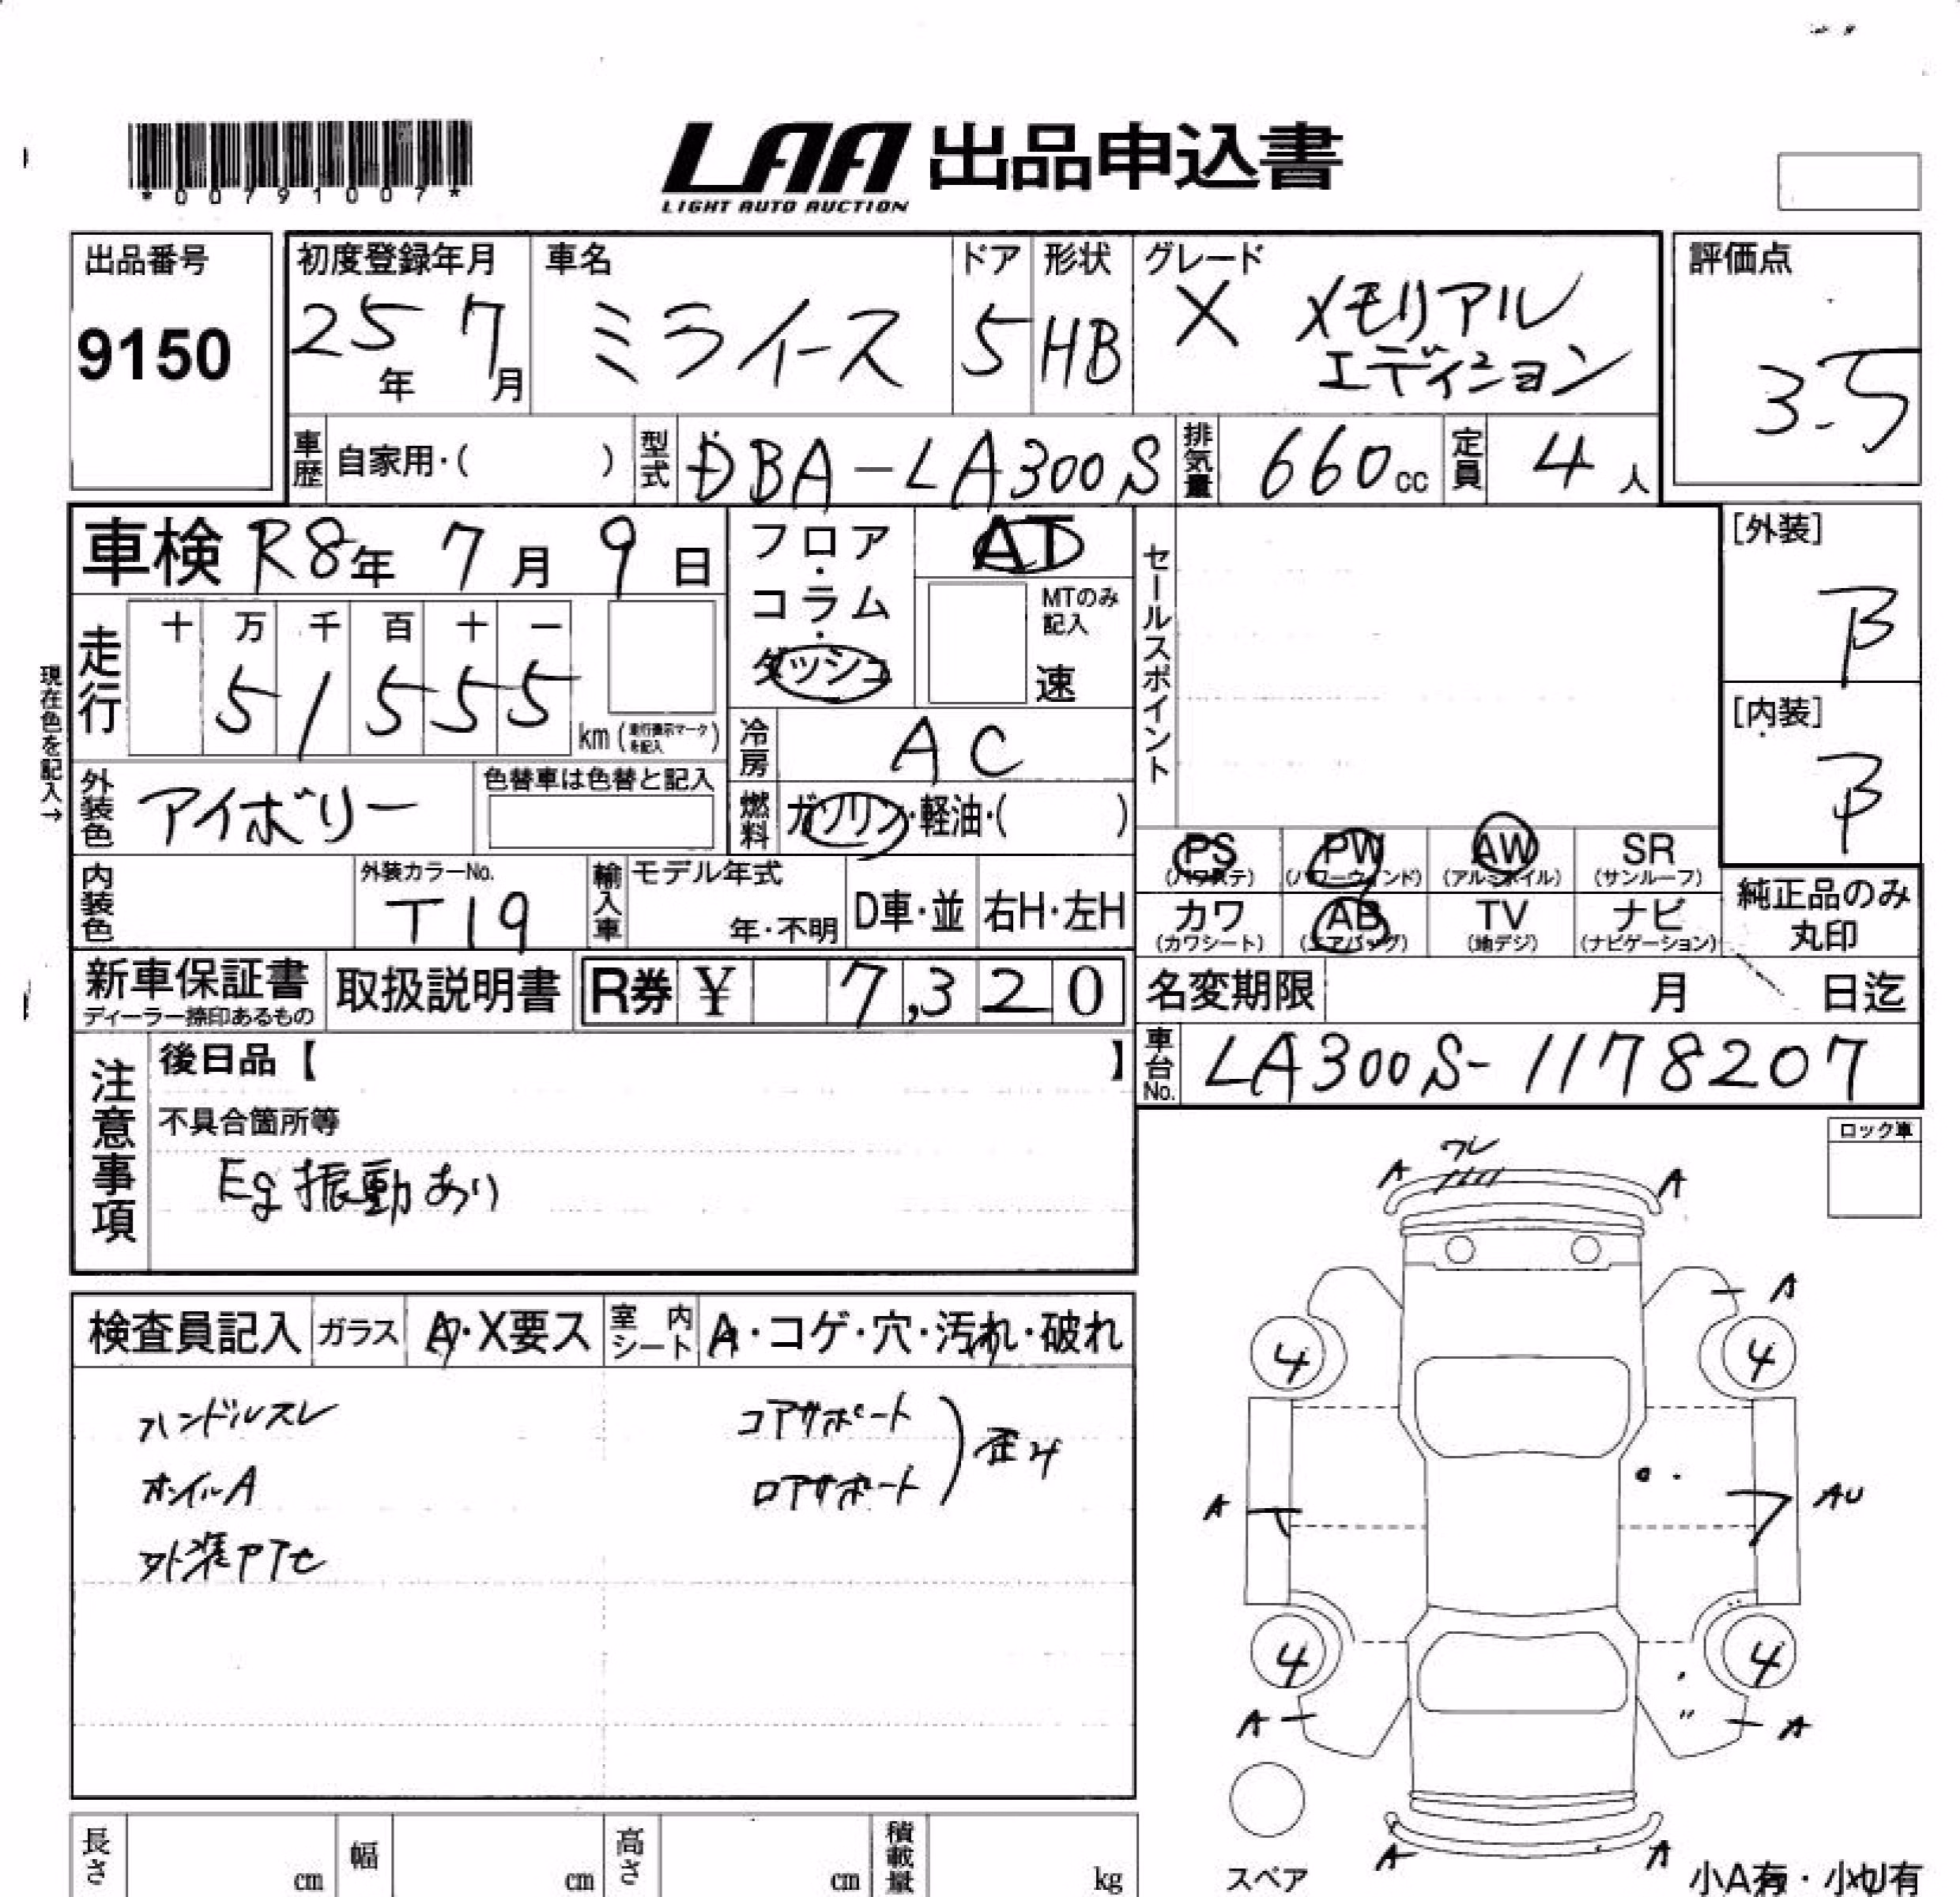 *0079100 7*
LAA 出品申込書
LIGHT AUTO AUCTION
出品番号
9150
初度登録年月
25年 7月
車名
ミライース
ドア
5
形状
HB
グレード
X メモリアル
エディション
評価点
3.5
車歴 自家用・( )
型式 DBA-LA300S
排気量 660cc
定員 4人
車検 R8年 7月 9日
フロア・コラム・ダッシュ
AT
MTのみ
記入
速
セールスポイント
[外装]
B
[内装]
B
現在色を記入→
走行
十 万 千 百 十 一
5 1 5 5 5
km (走行表示マークを記入)
冷房 AC
外装色 アイボリー
色替車は色替と記入
燃料 ガソリン・軽油・( )
PS PW AW SR
(パワステ) (パワーウィンド) (アルミホイル) (サンルーフ)
カワ AB TV ナビ
(カワシート) (エアバッグ) (地デジ) (ナビゲーション)
純正品のみ
丸印
内装色
外装カラーNo.
T19
輸入車
モデル年式
年・不明
D車・並
右H・左H
新車保証書
ディーラー捺印あるもの
取扱説明書
R券 ¥ 7,320
名変期限 月 日迄
車台No. LA300S-1178207
注意事項
後日品【 】
不具合箇所等
Eg振動あり
ロック車
検査員記入
ガラス A・X要ス
室内シート A・コゲ・穴・汚れ・破れ
ハンドルスレ
コアサポート
ホイルA
ロアサポート
歪み
外装アアセ
ワレ
A A
A
4 4
A AU
4 4
A A
A A
スペア
小A有・小U有
長さ cm
幅 cm
高さ cm
積載量 kg